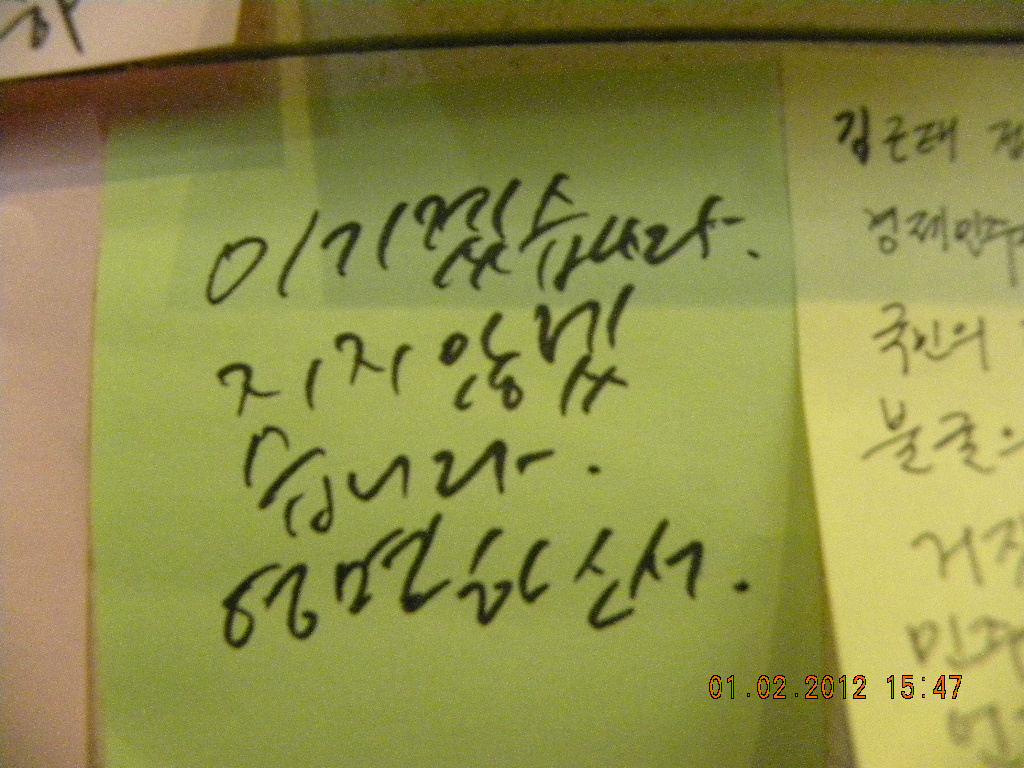 하
이기겠습니다.
지지 않겠
습니다.
영면하소서.
김근태
경제민주
국민의
불굴의
거
민주
01.02.2012 15:47